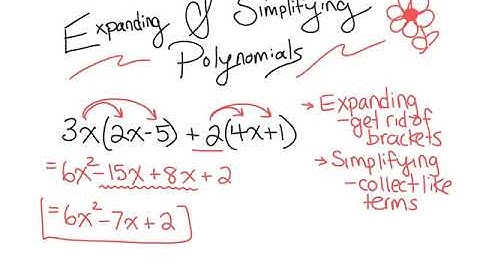 Expanding & Simplifying
Polynomials
3x(2x-5) + 2(4x+1)
= 6x² - 15x + 8x + 2
= 6x² - 7x + 2
→ Expanding
- get rid of
brackets
→ Simplifying
- collect like
terms